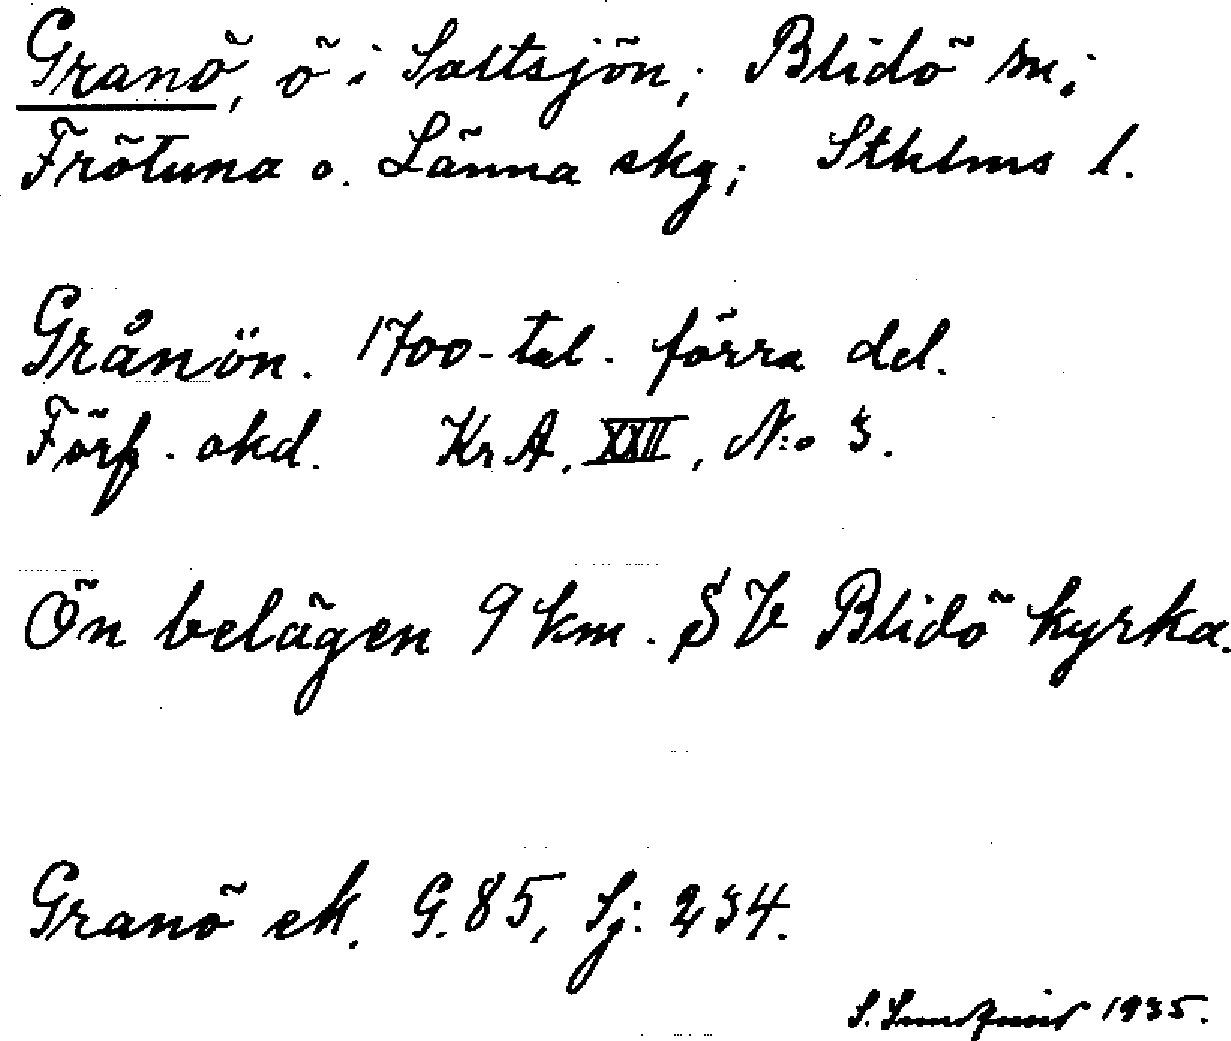 Granö, ö i Saltsjön; Blidö sn;
Frötuna o. Länna skg; Sthlms l.
Grånön. 1700-tal. förra del.
Förf. okd. Kr.A. XXII, N:o 3.
Ön belägen 9 km. SV Blidö kyrka.
Granö ek. G. 85, Sj: 234.
S. 1935.